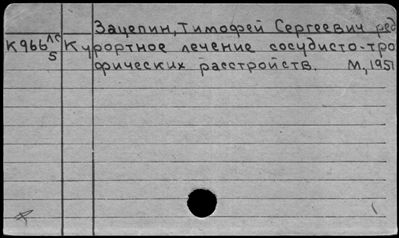 Зацепин, Тимофей Сергеевич ред
К966 ЛС 5 Курортное лечение сосудисто-тро
фических расстройств. М., 1951